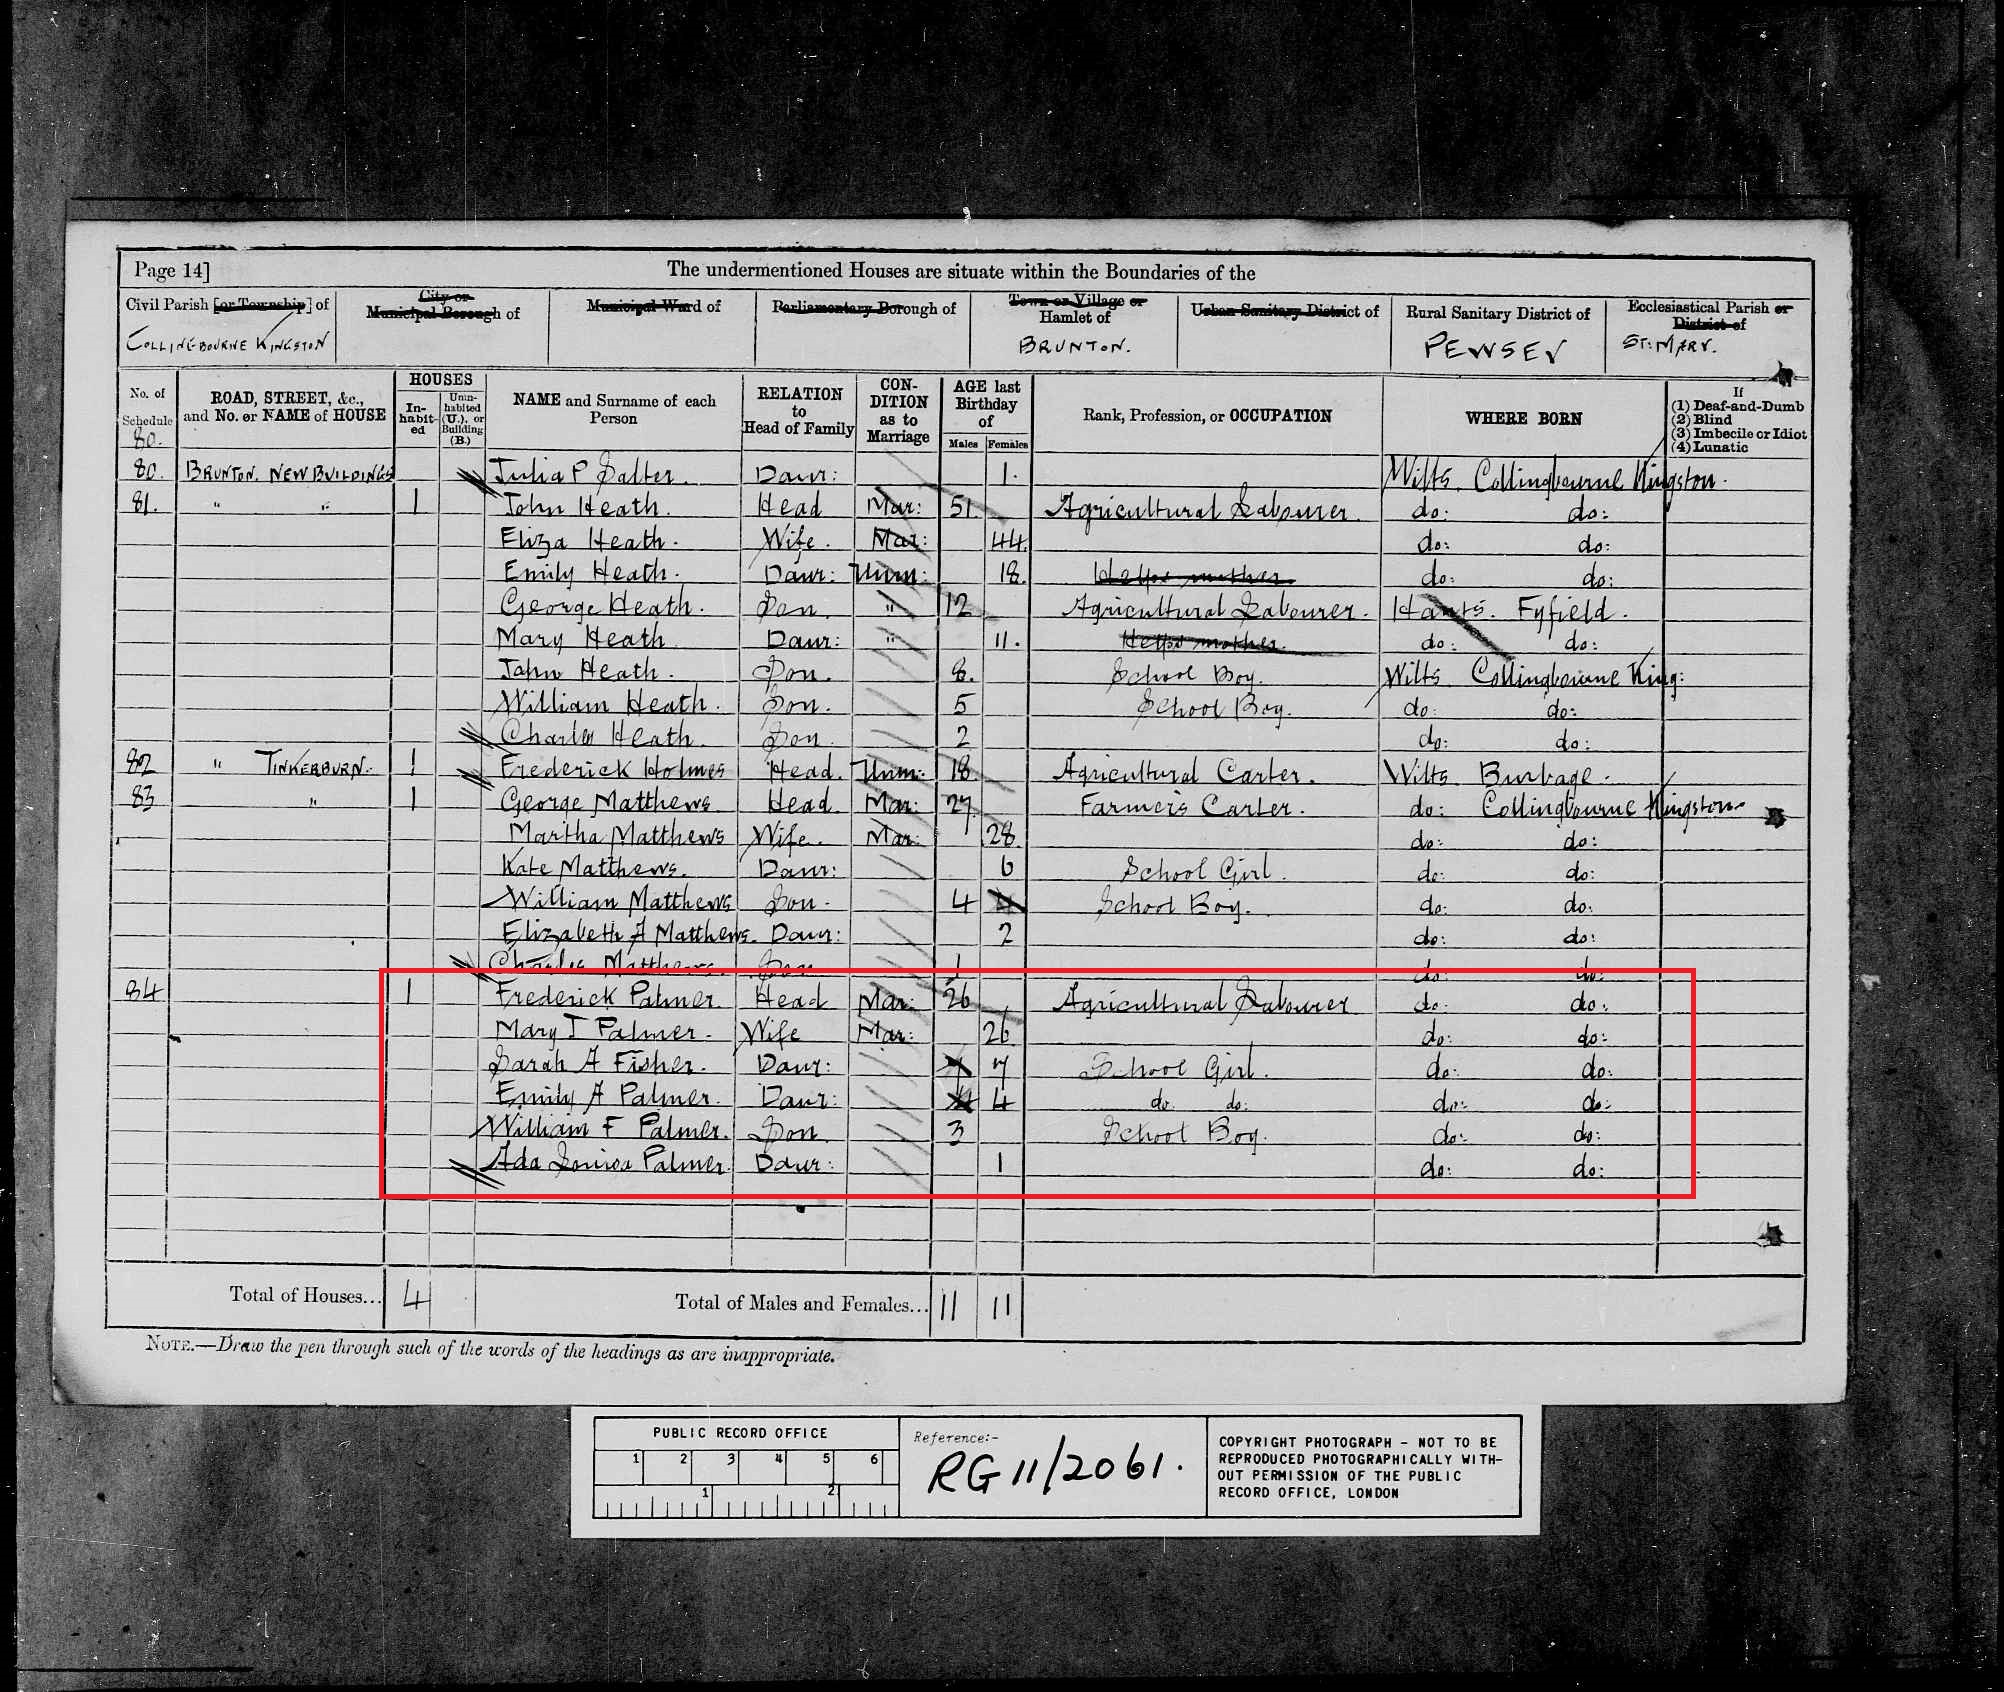 Page 14]
The undermentioned Houses are situate within the Boundaries of the
Civil Parish [or Township] of
City or Municipal Borough of
Municipal Ward of
Parliamentary Borough of
Town or Village or Hamlet of
Urban Sanitary District of
Rural Sanitary District of
Ecclesiastical Parish or District of
COLLINGBOURNE KINGSTON
BRUNTON.
PEWSEY
ST: MARY.
No. of Schedule
ROAD, STREET, &c., and No. or NAME of HOUSE
HOUSES
In-habit-ed
Unin-habited (U.), or Building (B.)
NAME and Surname of each Person
RELATION to Head of Family
CON-DITION as to Marriage
AGE last Birthday of
Males
Females
Rank, Profession, or OCCUPATION
WHERE BORN
If
(1) Deaf-and-Dumb
(2) Blind
(3) Imbecile or Idiot
(4) Lunatic
80.
80. BRUNTON. NEW BUILDINGS Julia P Salter. Daur: 1. Wilts. Collingbourne Kingston.
81. " " 1 John Heath. Head Mar: 51. Agricultural Labourer. do: do:
Eliza Heath. Wife. Mar: 44. do: do:
Emily Heath. Daur: Unm: 18. Helps mother do: do:
George Heath. Son. " 12 Agricultural Labourer. Hants. Fyfield.
Mary Heath Daur: " 11. Helps mother. do: do:
John Heath. Son. 8. School Boy. Wilts Collingbourne King:
William Heath. Son. 5 School Boy. do: do:
Charles Heath. Son. 2 do: do:
82 " TINKERBURN. 1 Frederick Holmes Head. Unm: 18 Agricultural Carter. Wilts. Burbage.
83 " 1 George Matthews Head Mar: 27 Farmers Carter. do: Collingbourne Kingston
Martha Matthews Wife. Mar: 28 do: do:
Kate Matthews. Daur: 6 School Girl. do: do:
William Matthews Son. 4 School Boy. do: do:
Elizabeth A Matthews. Daur: 2 do: do:
Charles Matthews. Son 1 do: do:
84 1 Frederick Palmer. Head Mar: 26 Agricultural Labourer do: do:
Mary J Palmer. Wife Mar: 26 do: do:
Sarah A Fisher. Daur: 7 7 School Girl. do: do:
Emily A Palmer. Daur: 4 4 do do: do: do:
William F Palmer. Son. 3 School Boy. do: do:
Ada Louisa Palmer. Daur: 1 do: do:
Total of Houses... 4 Total of Males and Females... 11 11
NOTE.—Draw the pen through such of the words of the headings as are inappropriate.
PUBLIC RECORD OFFICE
1 2 3 4 5 6
1 2
Reference:-
RG 11/2061.
COPYRIGHT PHOTOGRAPH - NOT TO BE
REPRODUCED PHOTOGRAPHICALLY WITH-
OUT PERMISSION OF THE PUBLIC
RECORD OFFICE, LONDON